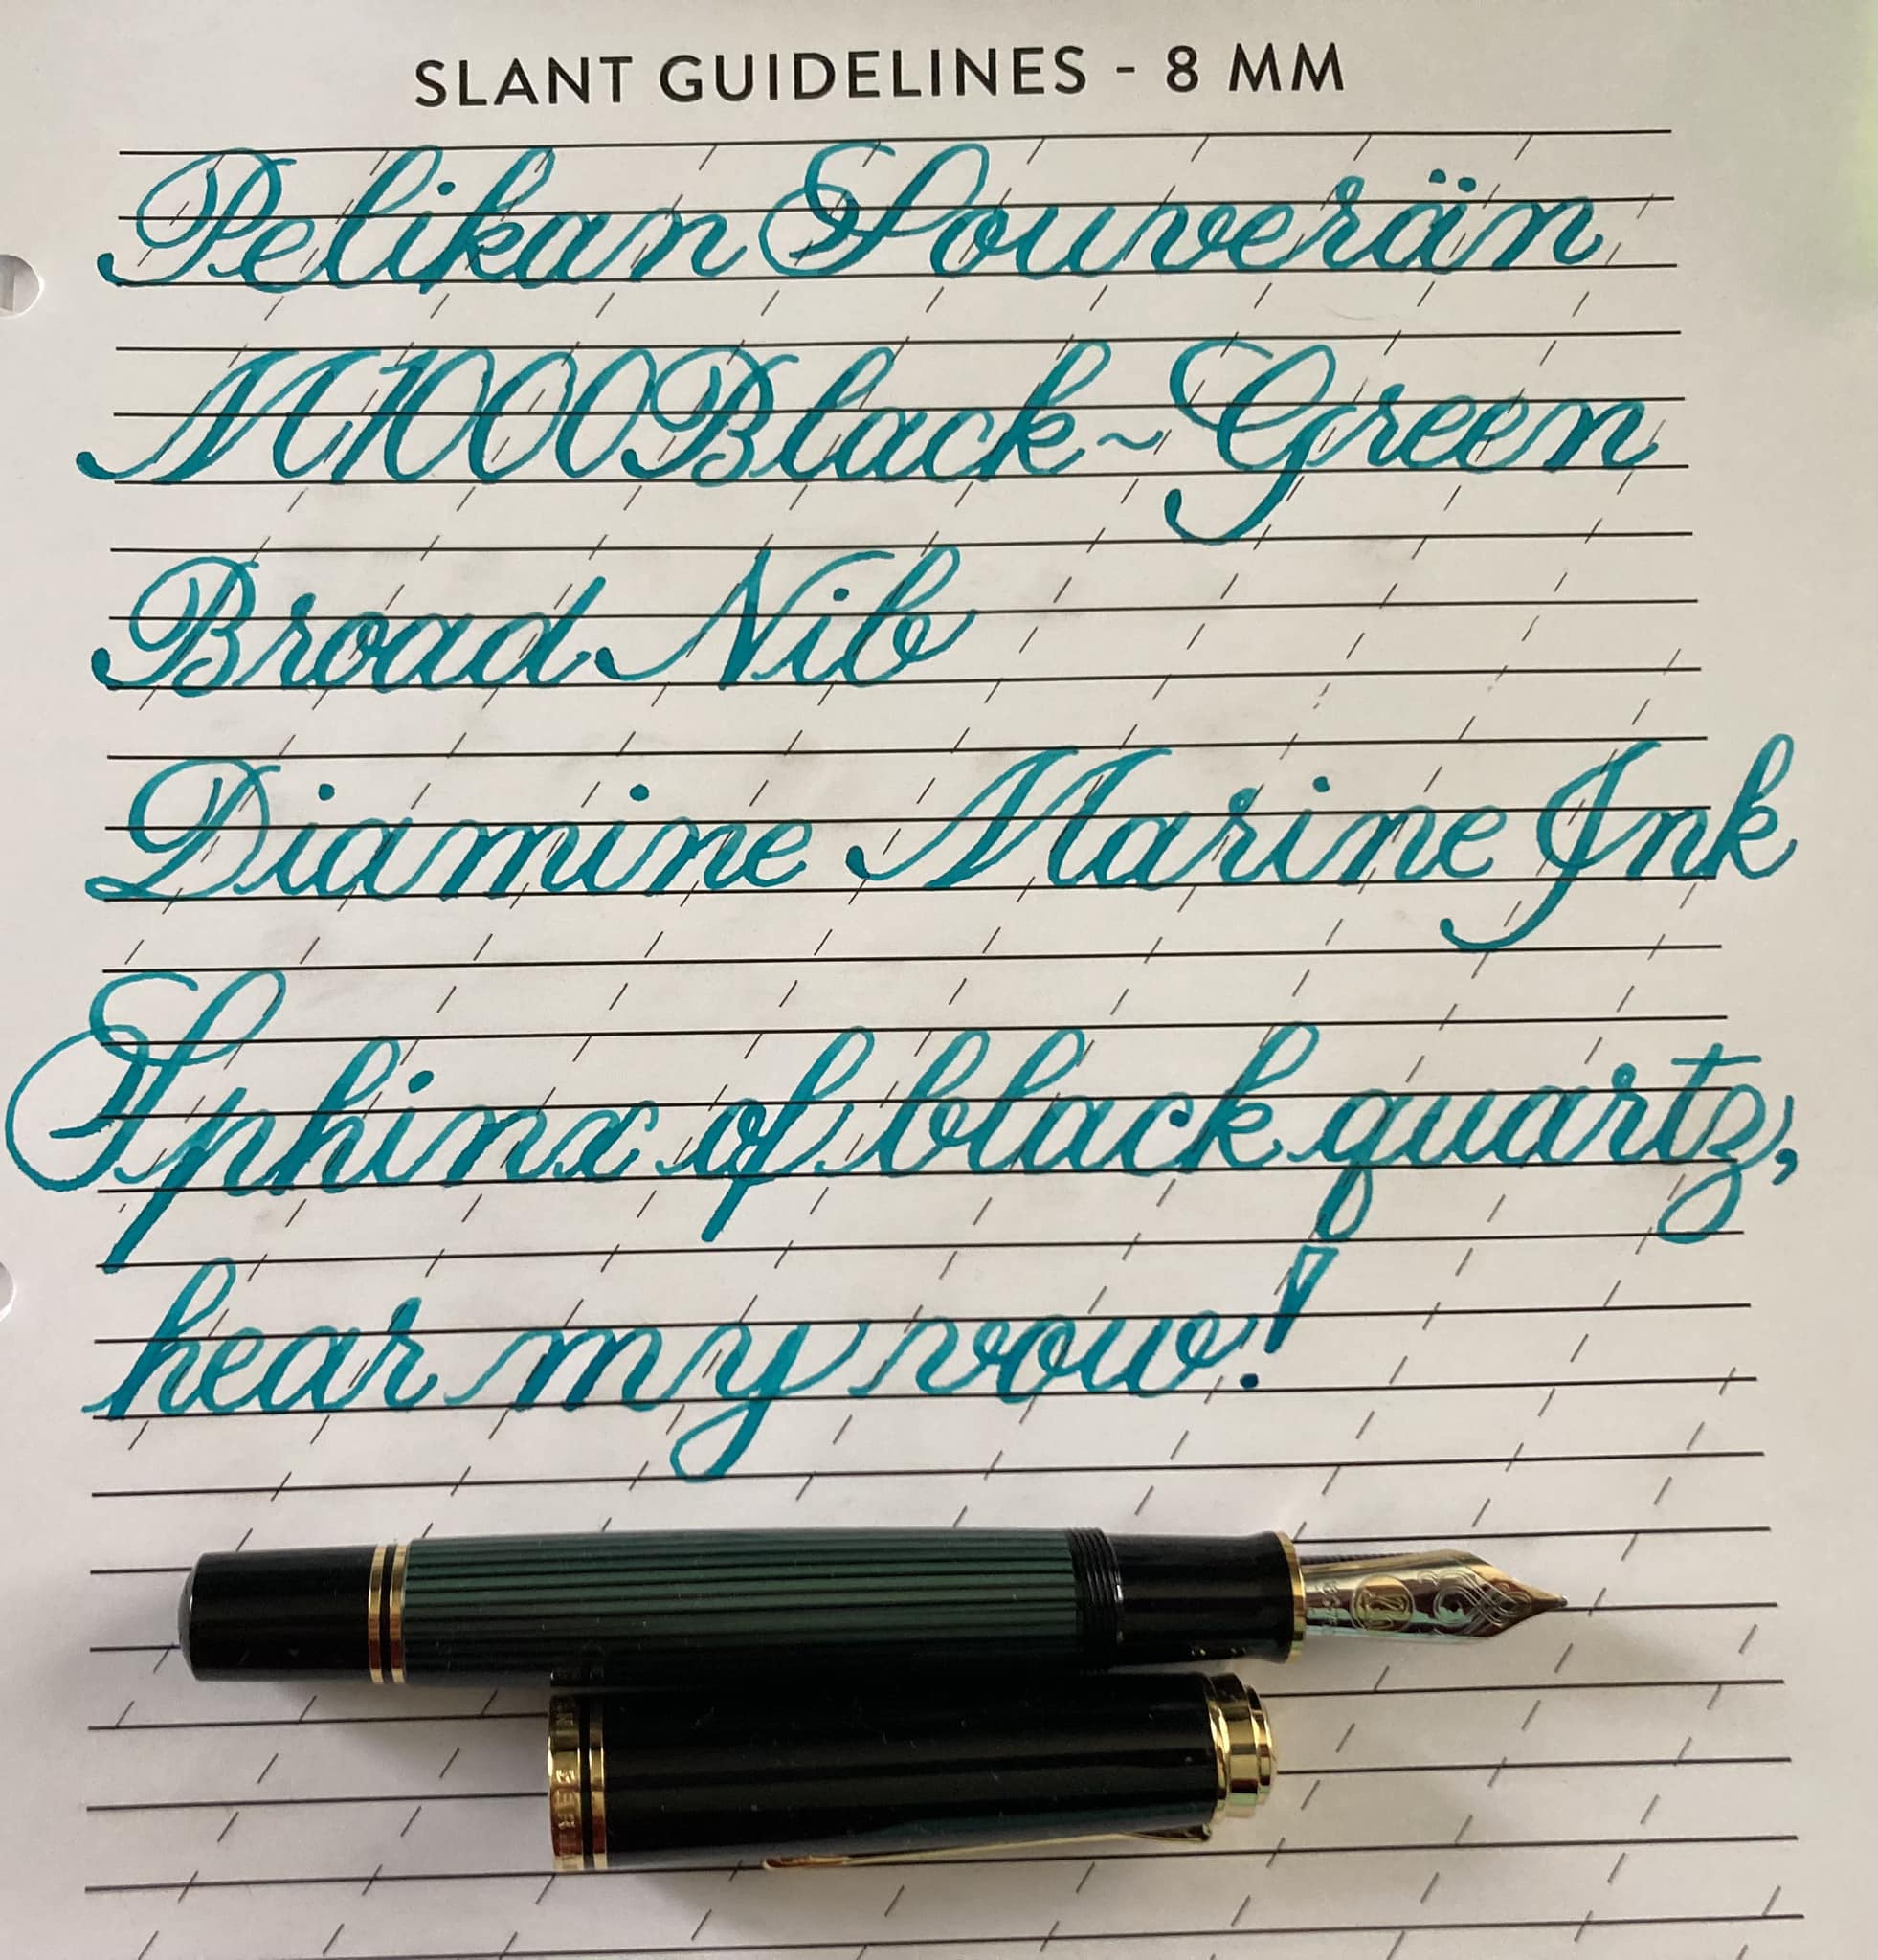 SLANT GUIDELINES - 8 MM
Pelikan Souverän
M1000 Black~Green
Broad Nib
Diamine Marine Ink
Sphinx of black quartz,
hear my vow!